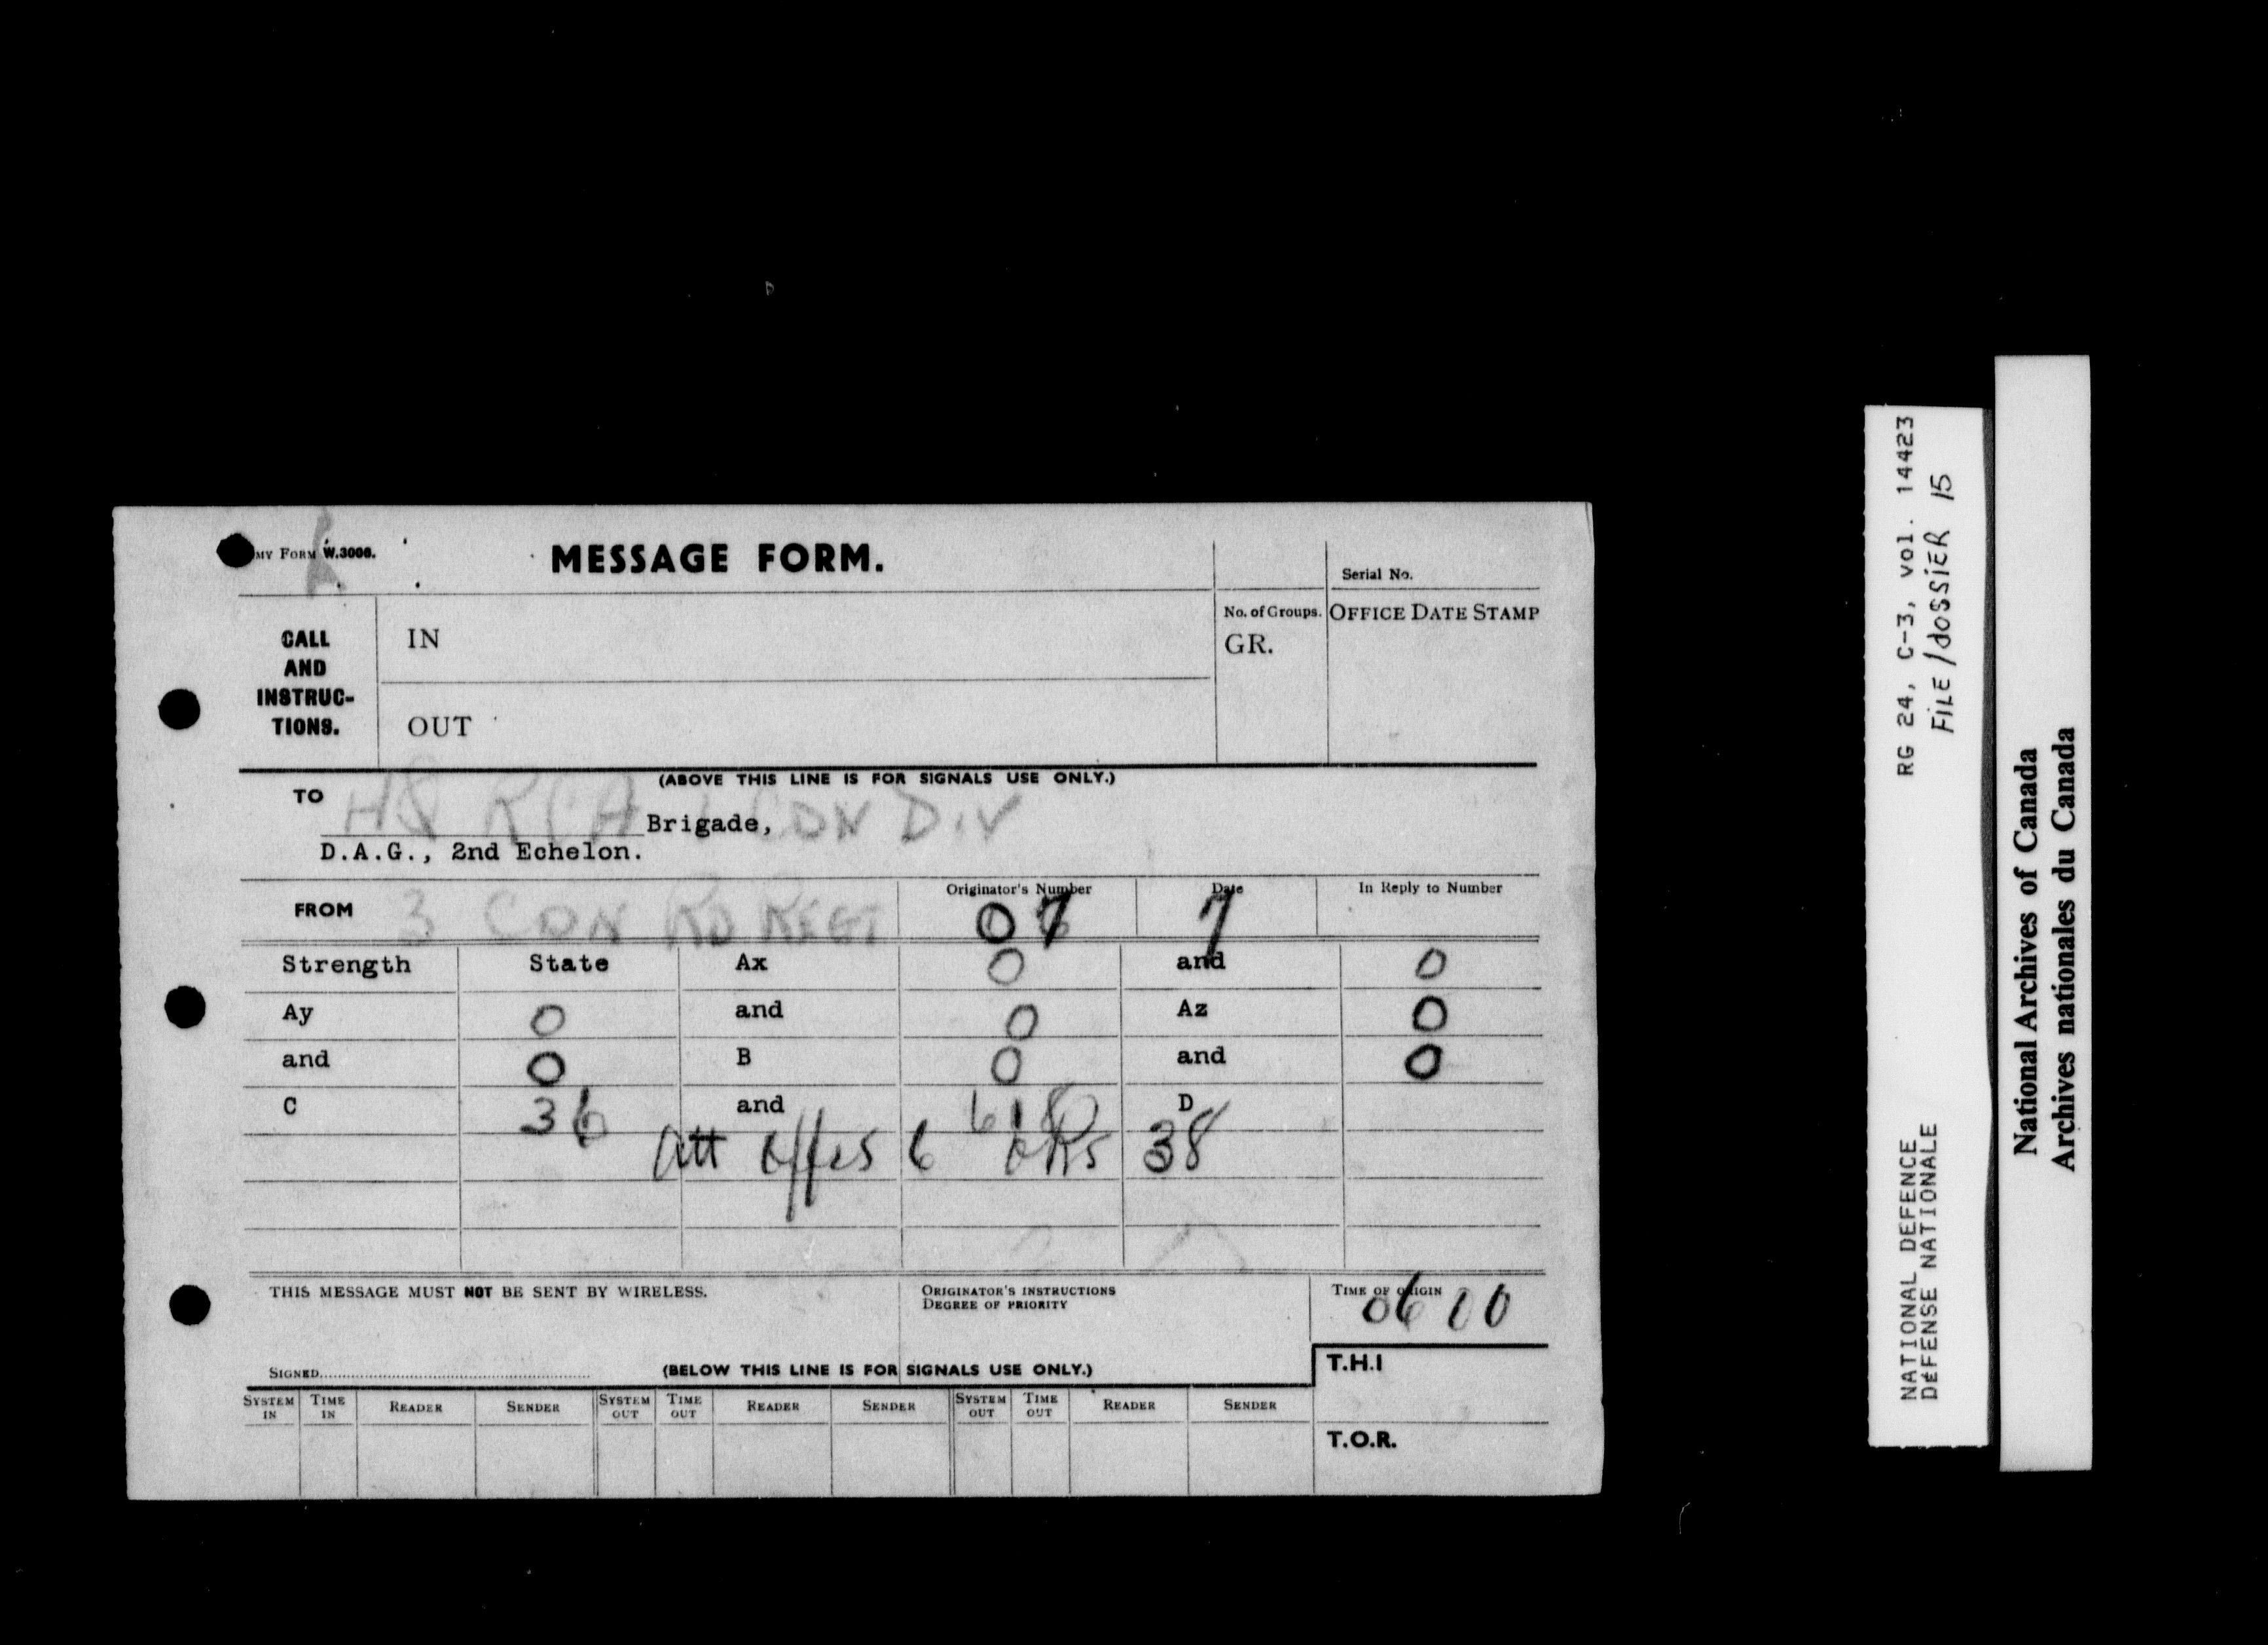 MY FORM W.3006.
MESSAGE FORM.
Serial No.
CALL AND INSTRUC- TIONS.
IN
No. of Groups.
GR.
OFFICE DATE STAMP
OUT
(ABOVE THIS LINE IS FOR SIGNALS USE ONLY.)
TO HQ RCA CDN DIV
Brigade,
D.A.G., 2nd Echelon.
FROM 3 CDN RD REGT
Originator's Number 07
Date 7
In Reply to Number
Strength State Ax 0 and 0
Ay 0 and 0 Az 0
and 0 B 0 and 0
C 36 and 618 D
Att offrs 6 ORs 38
THIS MESSAGE MUST NOT BE SENT BY WIRELESS.
ORIGINATOR'S INSTRUCTIONS
DEGREE OF PRIORITY
TIME OF ORIGIN
0600
SIGNED
(BELOW THIS LINE IS FOR SIGNALS USE ONLY.)
T.H.I
SYSTEM IN TIME IN READER SENDER SYSTEM OUT TIME OUT READER SENDER SYSTEM OUT TIME OUT READER SENDER
T.O.R.
RG 24, C-3, vol. 14423
FILE/dossier 15
NATIONAL DEFENCE
DÉFENSE NATIONALE
National Archives of Canada
Archives nationales du Canada